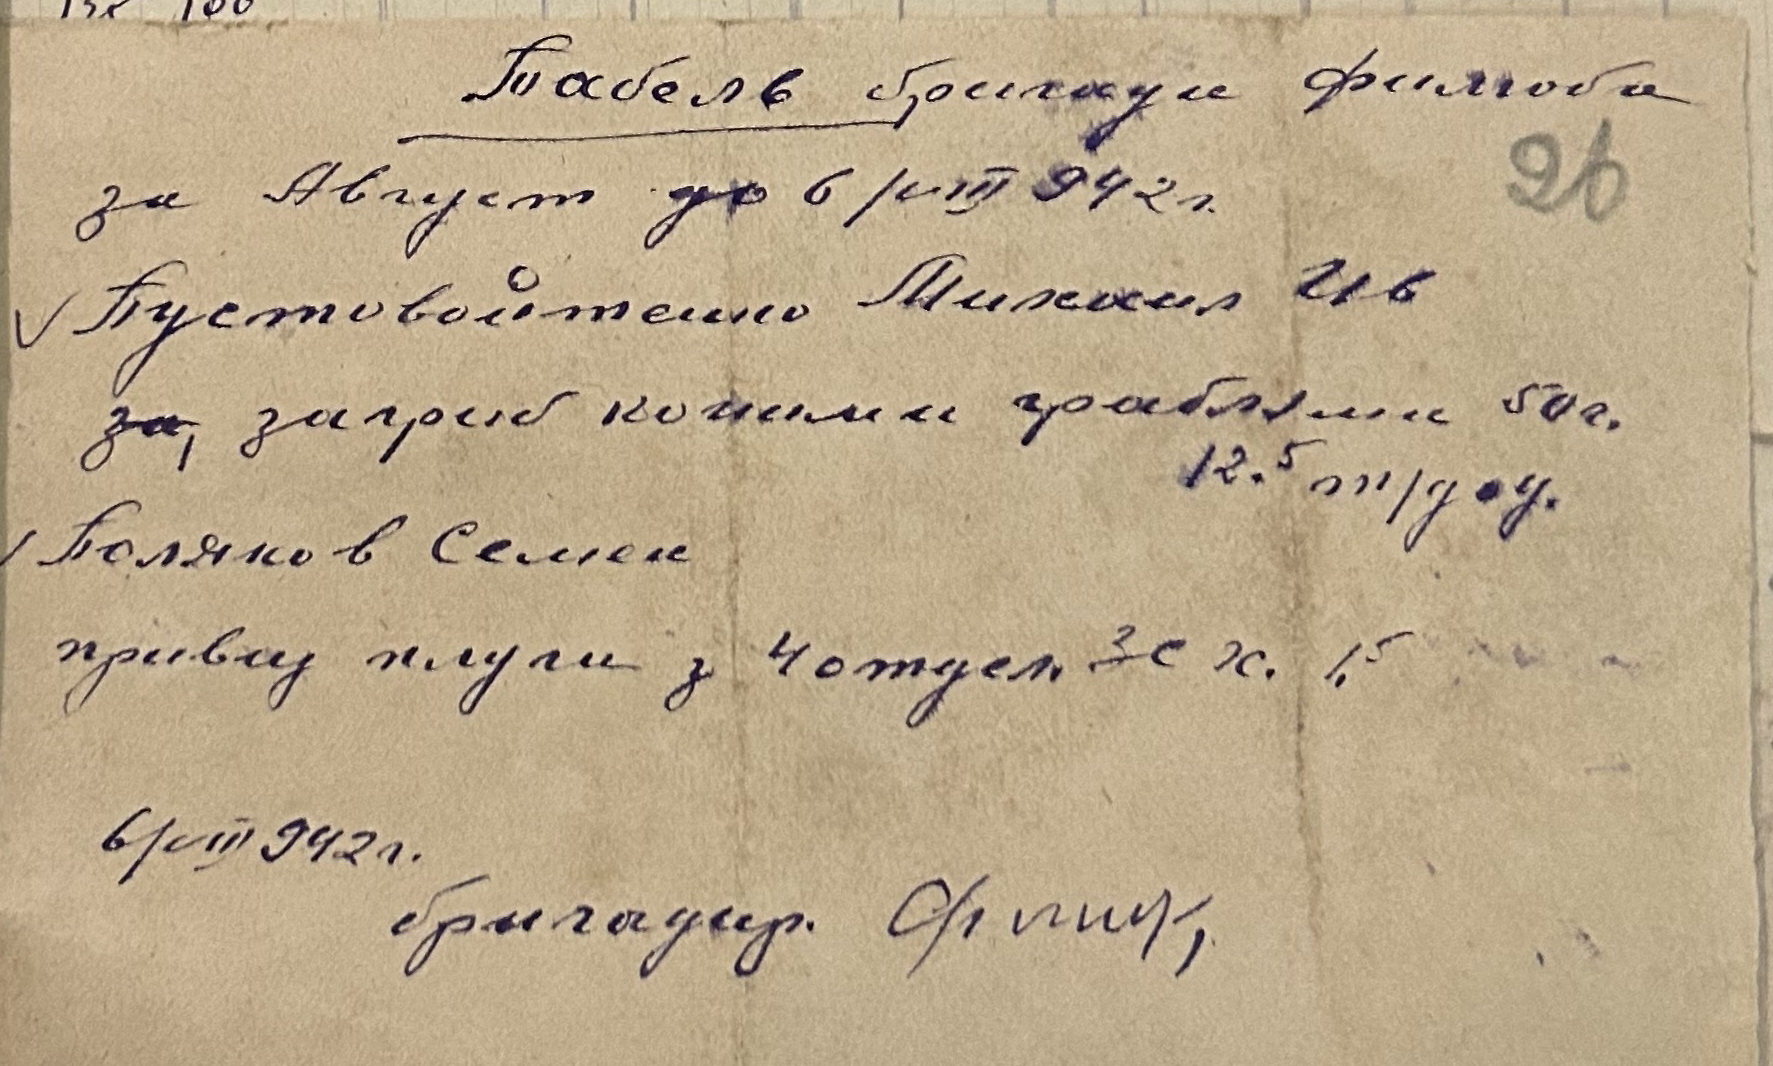 138 100
Табель бригади Филюова
за Август до 6/VIII 942 г.
26
Пустовойтенко Михаил Ив
за, загриб конними граблями 50 г.
12.5 т/дод.
Поляков Семен
привиз плуги з 4 отдел. ЗСХ. 1.5
6/VIII 942 г.
бригадир.